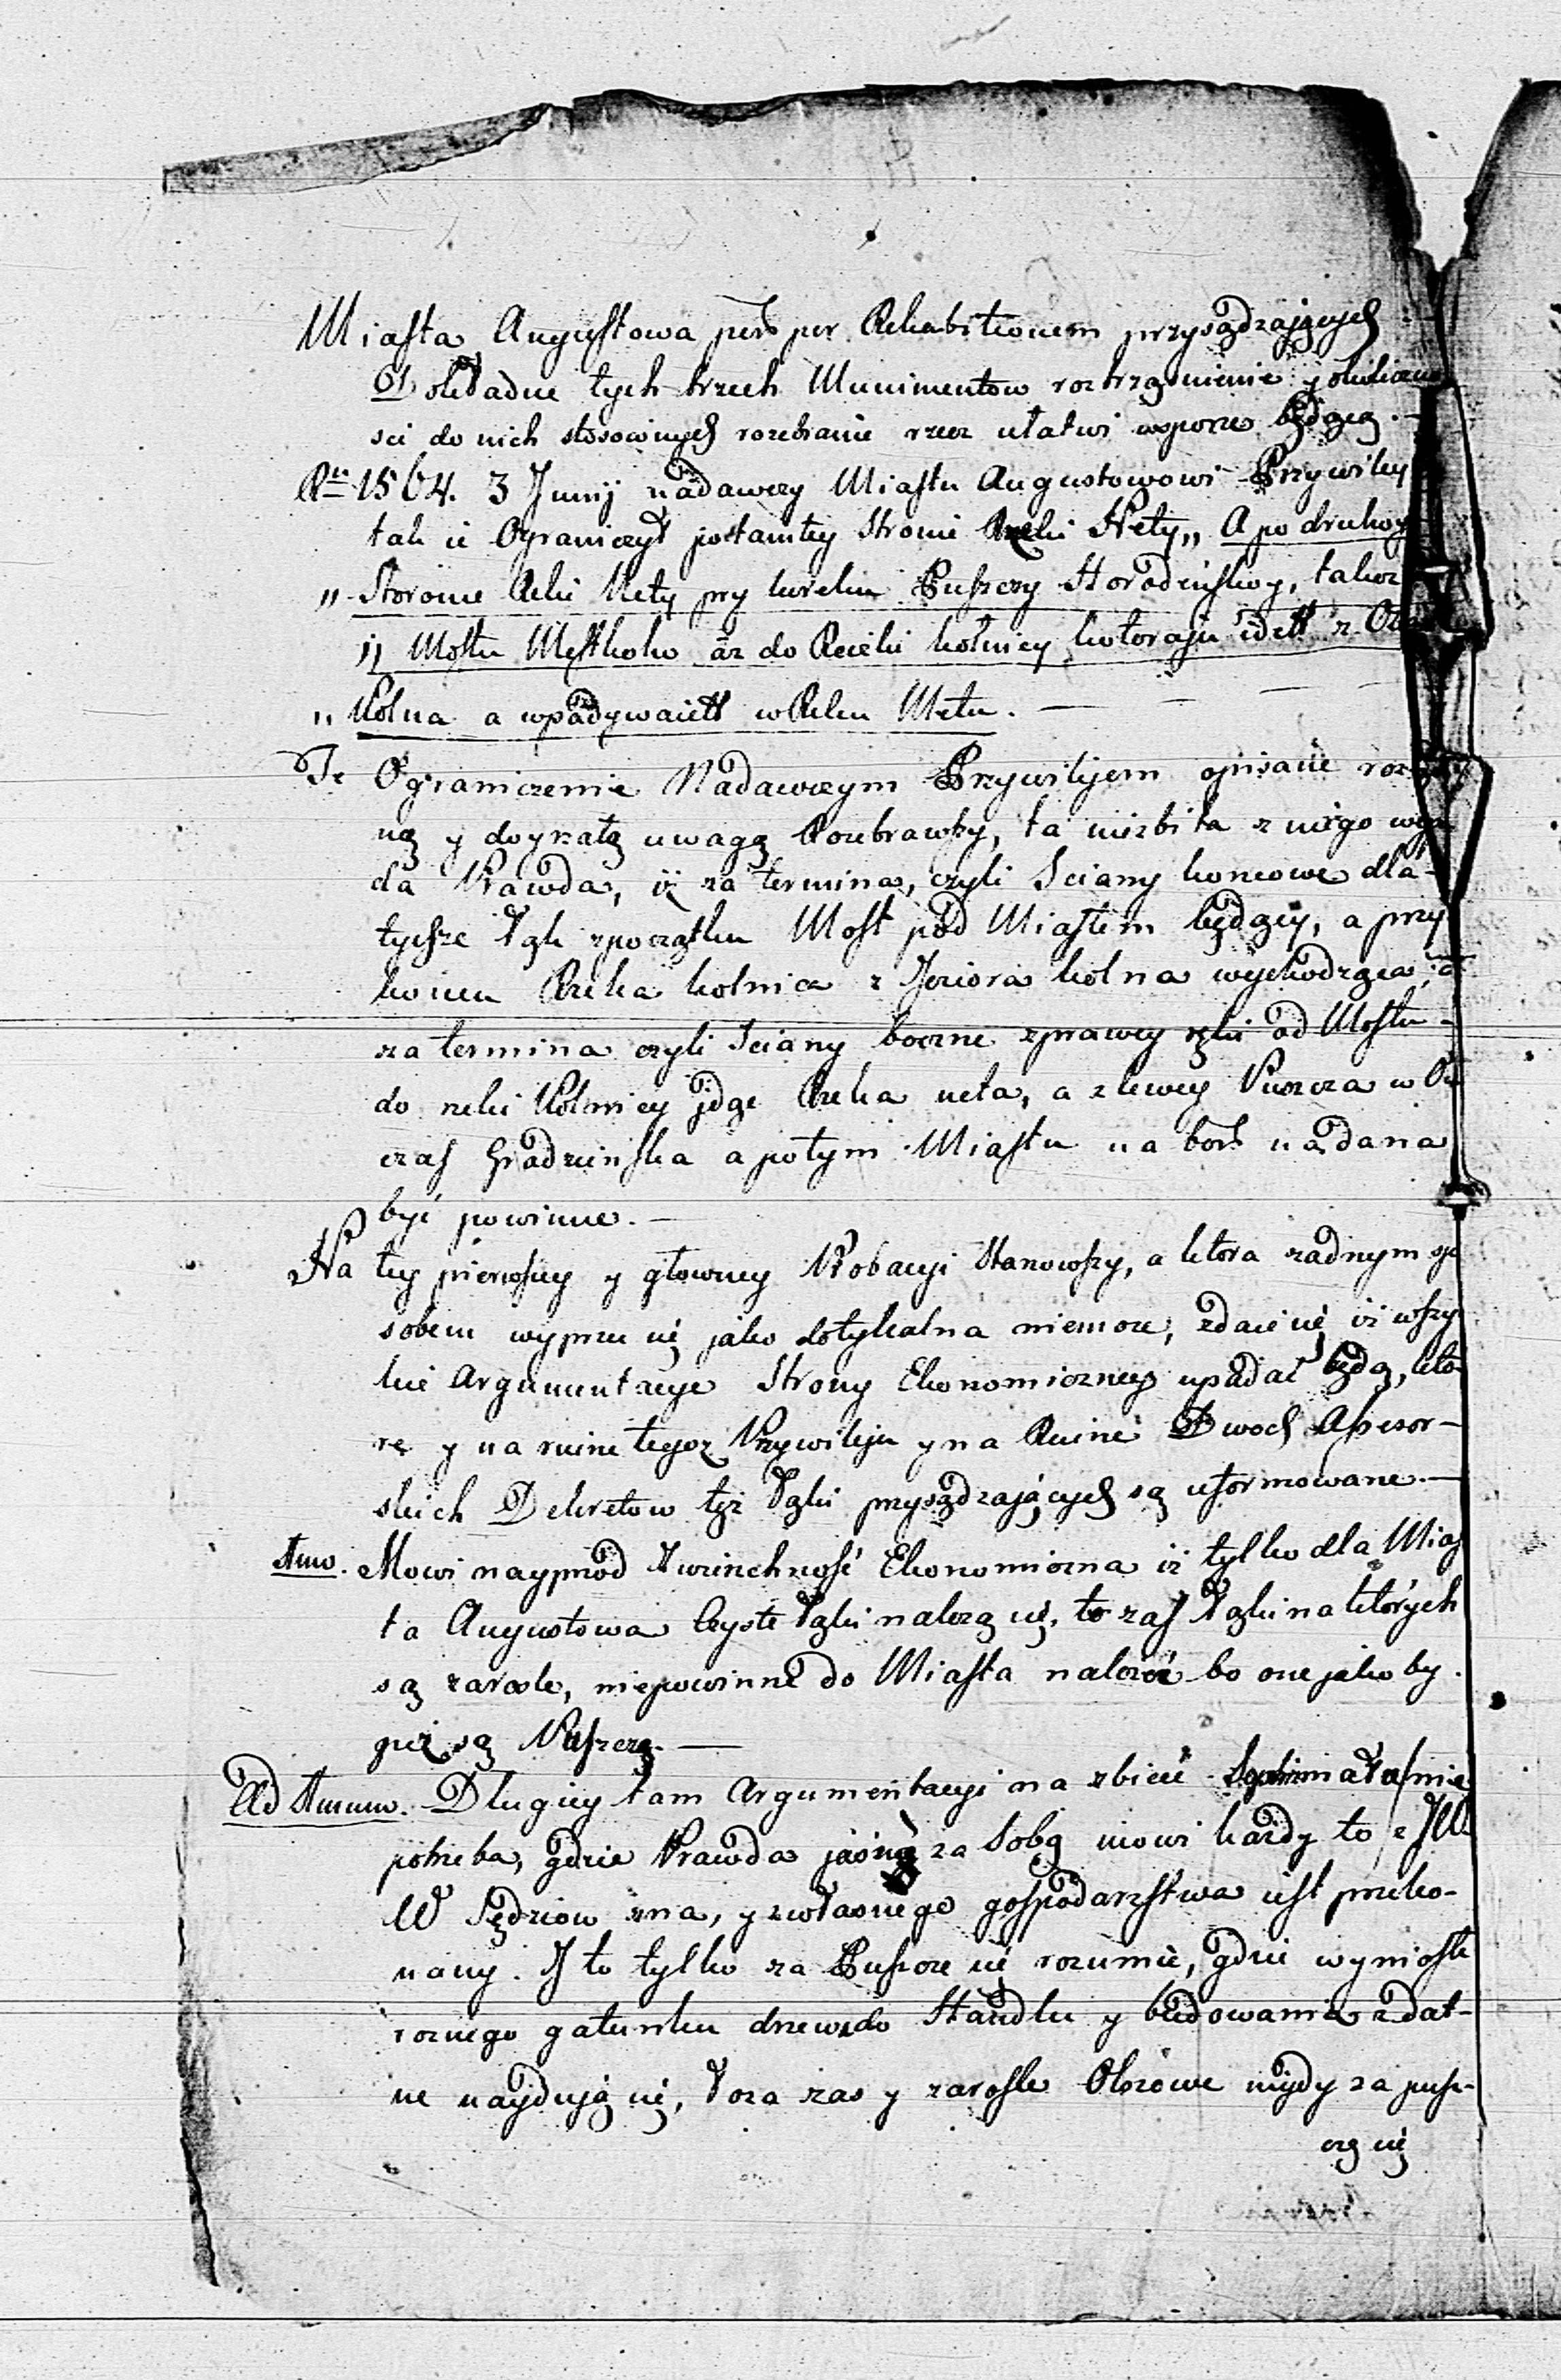 Miasta Augustowa per Rehabitionem przysądzających
Dokładne tych trzech Munimentow roztrząsnienie y okoliczno
sci do nich stosownych rozebranie rzecz ułatwi w sporze będącą.
Rku 1564. 3 Junij nadawczy Miastu Augustowowi Przywiley
tak ie Ograniczył po tamtey stronie Rzeki Nety,, A po druhoy
,, Storonie Reki Nety pry hreku Puszczy Horodeńskoy, takoż
,, Mostu Mestkoho aż do Reczki kolnicy kotoraju idett z Oz
,, Kolna a wpadywaiett w Reku Metu. —
Te Ograniczenie Nadawczym Przywilejem opisanie
ną y doyrzałą uwagą Rozebrawszy, ta niezbita z niego wypa
da Prawda, iż za termina, czyli Sciany koncowe dla
tychże Łąk z początku Most pod Miastem będący, a przy
koncu Rzeka kolnica z Jeziora kolna wychodząca, a
za termina czyli Sciany boczne z prawey ręki od Mostu
do rzeki Kolnicy idąc Rzeka neta, a z lewey Puszcza w
czas Grodzienska a potym Miastu na bor nadana
być powinne. —
Na tey pierwszey y głowney Probacyi Stanowszy, a ktora zadnym spo
sobem wyprzeć się jako dotykalna niemoze, zdaie się iż wszy
kie Argumentacye Strony Ekonomiczney upadać będą, kto
re y na ruinę tegoz Przywileju y na Ruinę Dwoch Assesor-
skich Dekretow też Łąki przysądzających są uformowane. —
Amo. Mowi nayprzod Zwierzchność Ekonomiczna iż tylko dla Mias
ta Augustowa Czyste Łąki nalezą się, te zaś Łąki na których
są zarosle, niepowinne do Miasta nalezeć bo one jako by
już są Puszczą. —
Ad Amum. Długiey tam Argumentacyi na zbicie nie
potrzeba, gdzie Prawda jasna za Sobą mowi każdy to z JW
W Sędziow zna, y z własnego gospodarstwa iest przeko-
nany. Iż to tylko za Puszcze się rozumie, gdzie wyniosłe
roznego gatunku drzewa do Handlu y budowania zdat-
ne nayduią się, Łoza zas y zarosle Olszowe nigdy za pusz-
czą się